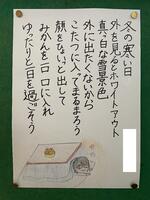 冬の寒い日
外を見るとホワイトアウト
真っ白な雪景色
外に出たくないから
こたつに入ってまるまろう
顔をひょいと出して
みかんを一口に入れ
ゆったりと日を過ごそう